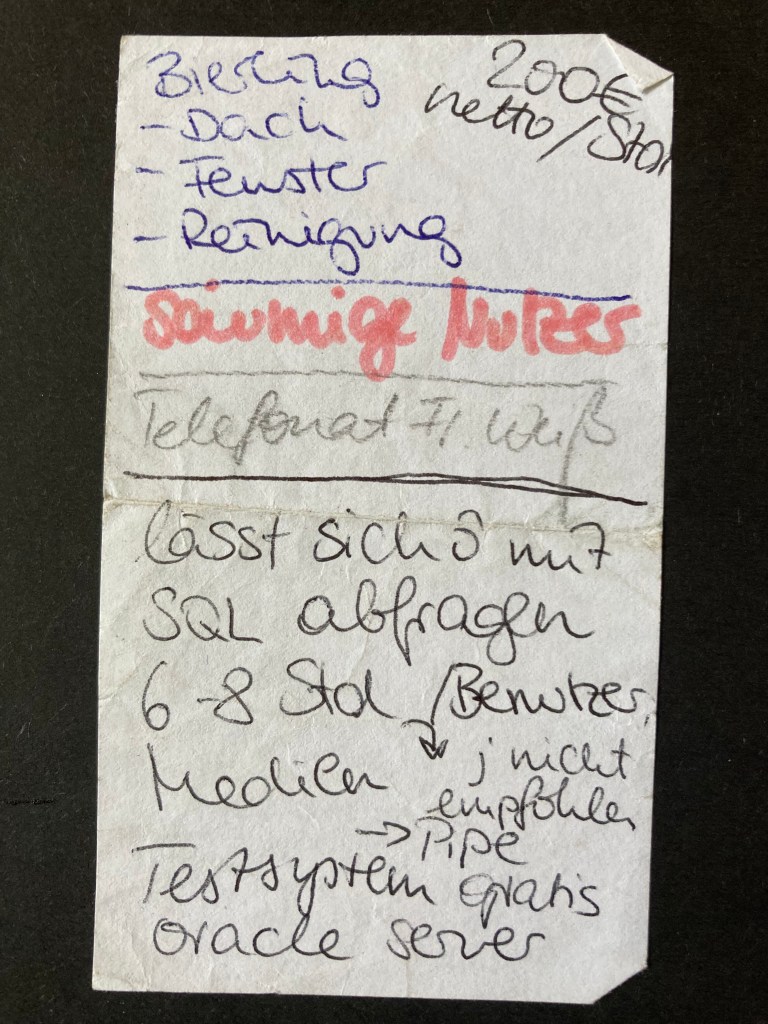 Bierling
200€
netto/Std
- Dach
- Fenster
- Reinigung
säumige Nutzer
Telefonat Fr. Weiß
lässt sich mit
SQL abfragen
6-8 Std /Benutzer,
Medien
; nicht
empfohlen
→ Pipe
Testsystem gratis
oracle server